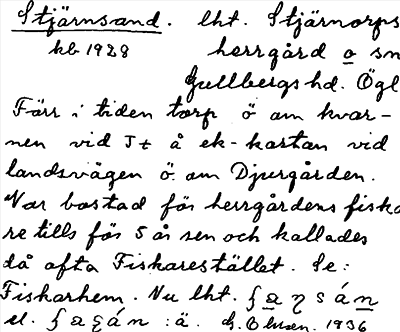 Stjärnsand. lht. Stjärnorps
kb 1928 herrgård o sn
Gullbergs hd. Ögl
Förr i tiden torp ö om kvar-
nen vid J+ å ek-kartan vid
landsvägen ö. om Djurgården.
Var bostad för herrgårdens fiska
re tills för 5 år sen och kallades
då ofta Fiskarestället. Se:
Fiskarhem. Nu lht.
el. :ä. 1936